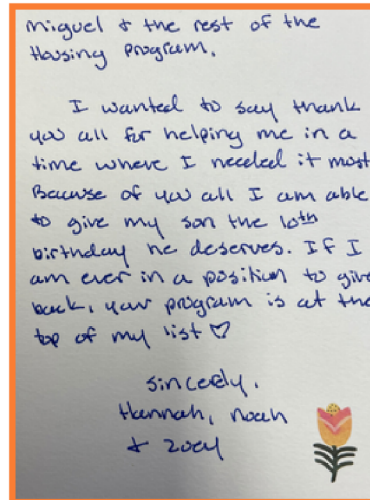 Miguel & the rest of the
Housing program,
I wanted to say thank
you all for helping me in a
time where I needed it most
Because of you all I am able
to give my son the 10th
birthday he deserves. If I
am ever in a position to give
back, your program is at the
top of my list ♡
Sincerely,
Hannah, Noah
& Zoey